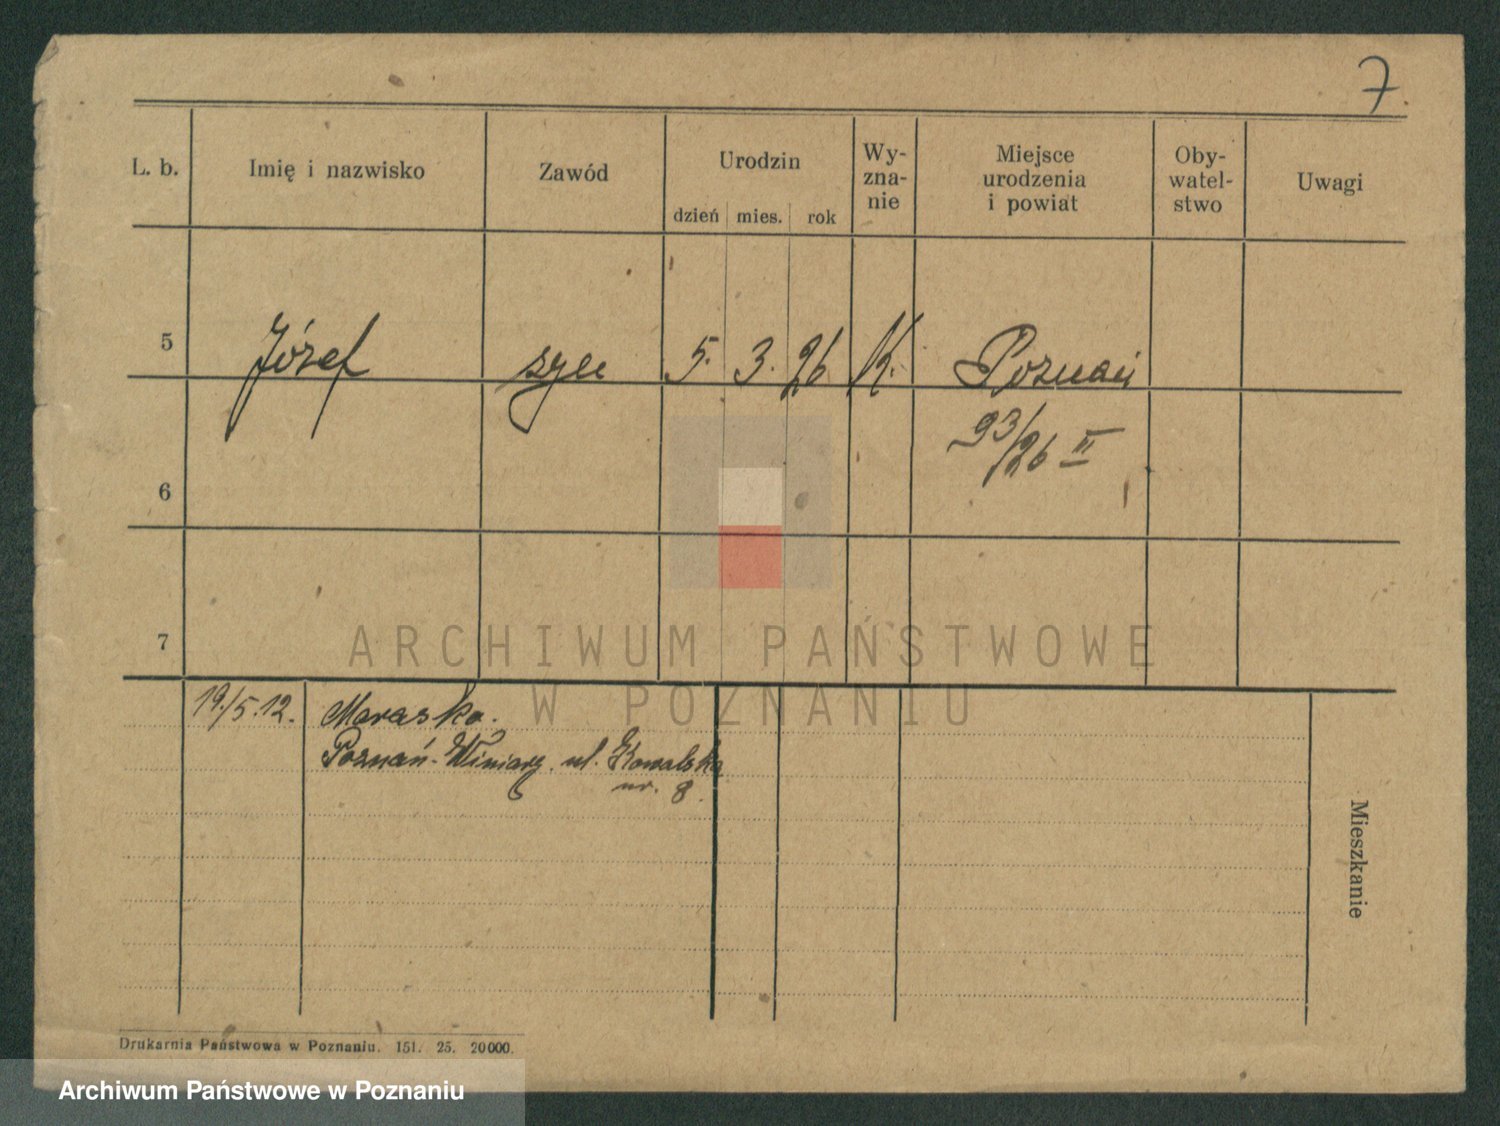 7.
L. b. Imię i nazwisko Zawód Urodzin Wy-
zna-
nie Miejsce
urodzenia
i powiat Oby-
watel-
stwo Uwagi
dzień mies. rok
5 Józef syn 5. 3. 26 K. Poznań
93/26 II
6
7
ARCHIWUM PAŃSTWOWE
W POZNANIU
19./5.12. Morasko.
Poznań-Winiary. ul. Kowalska
nr. 8.
Mieszkanie
Drukarnia Państwowa w Poznaniu. 151. 25. 20000.
Archiwum Państwowe w Poznaniu